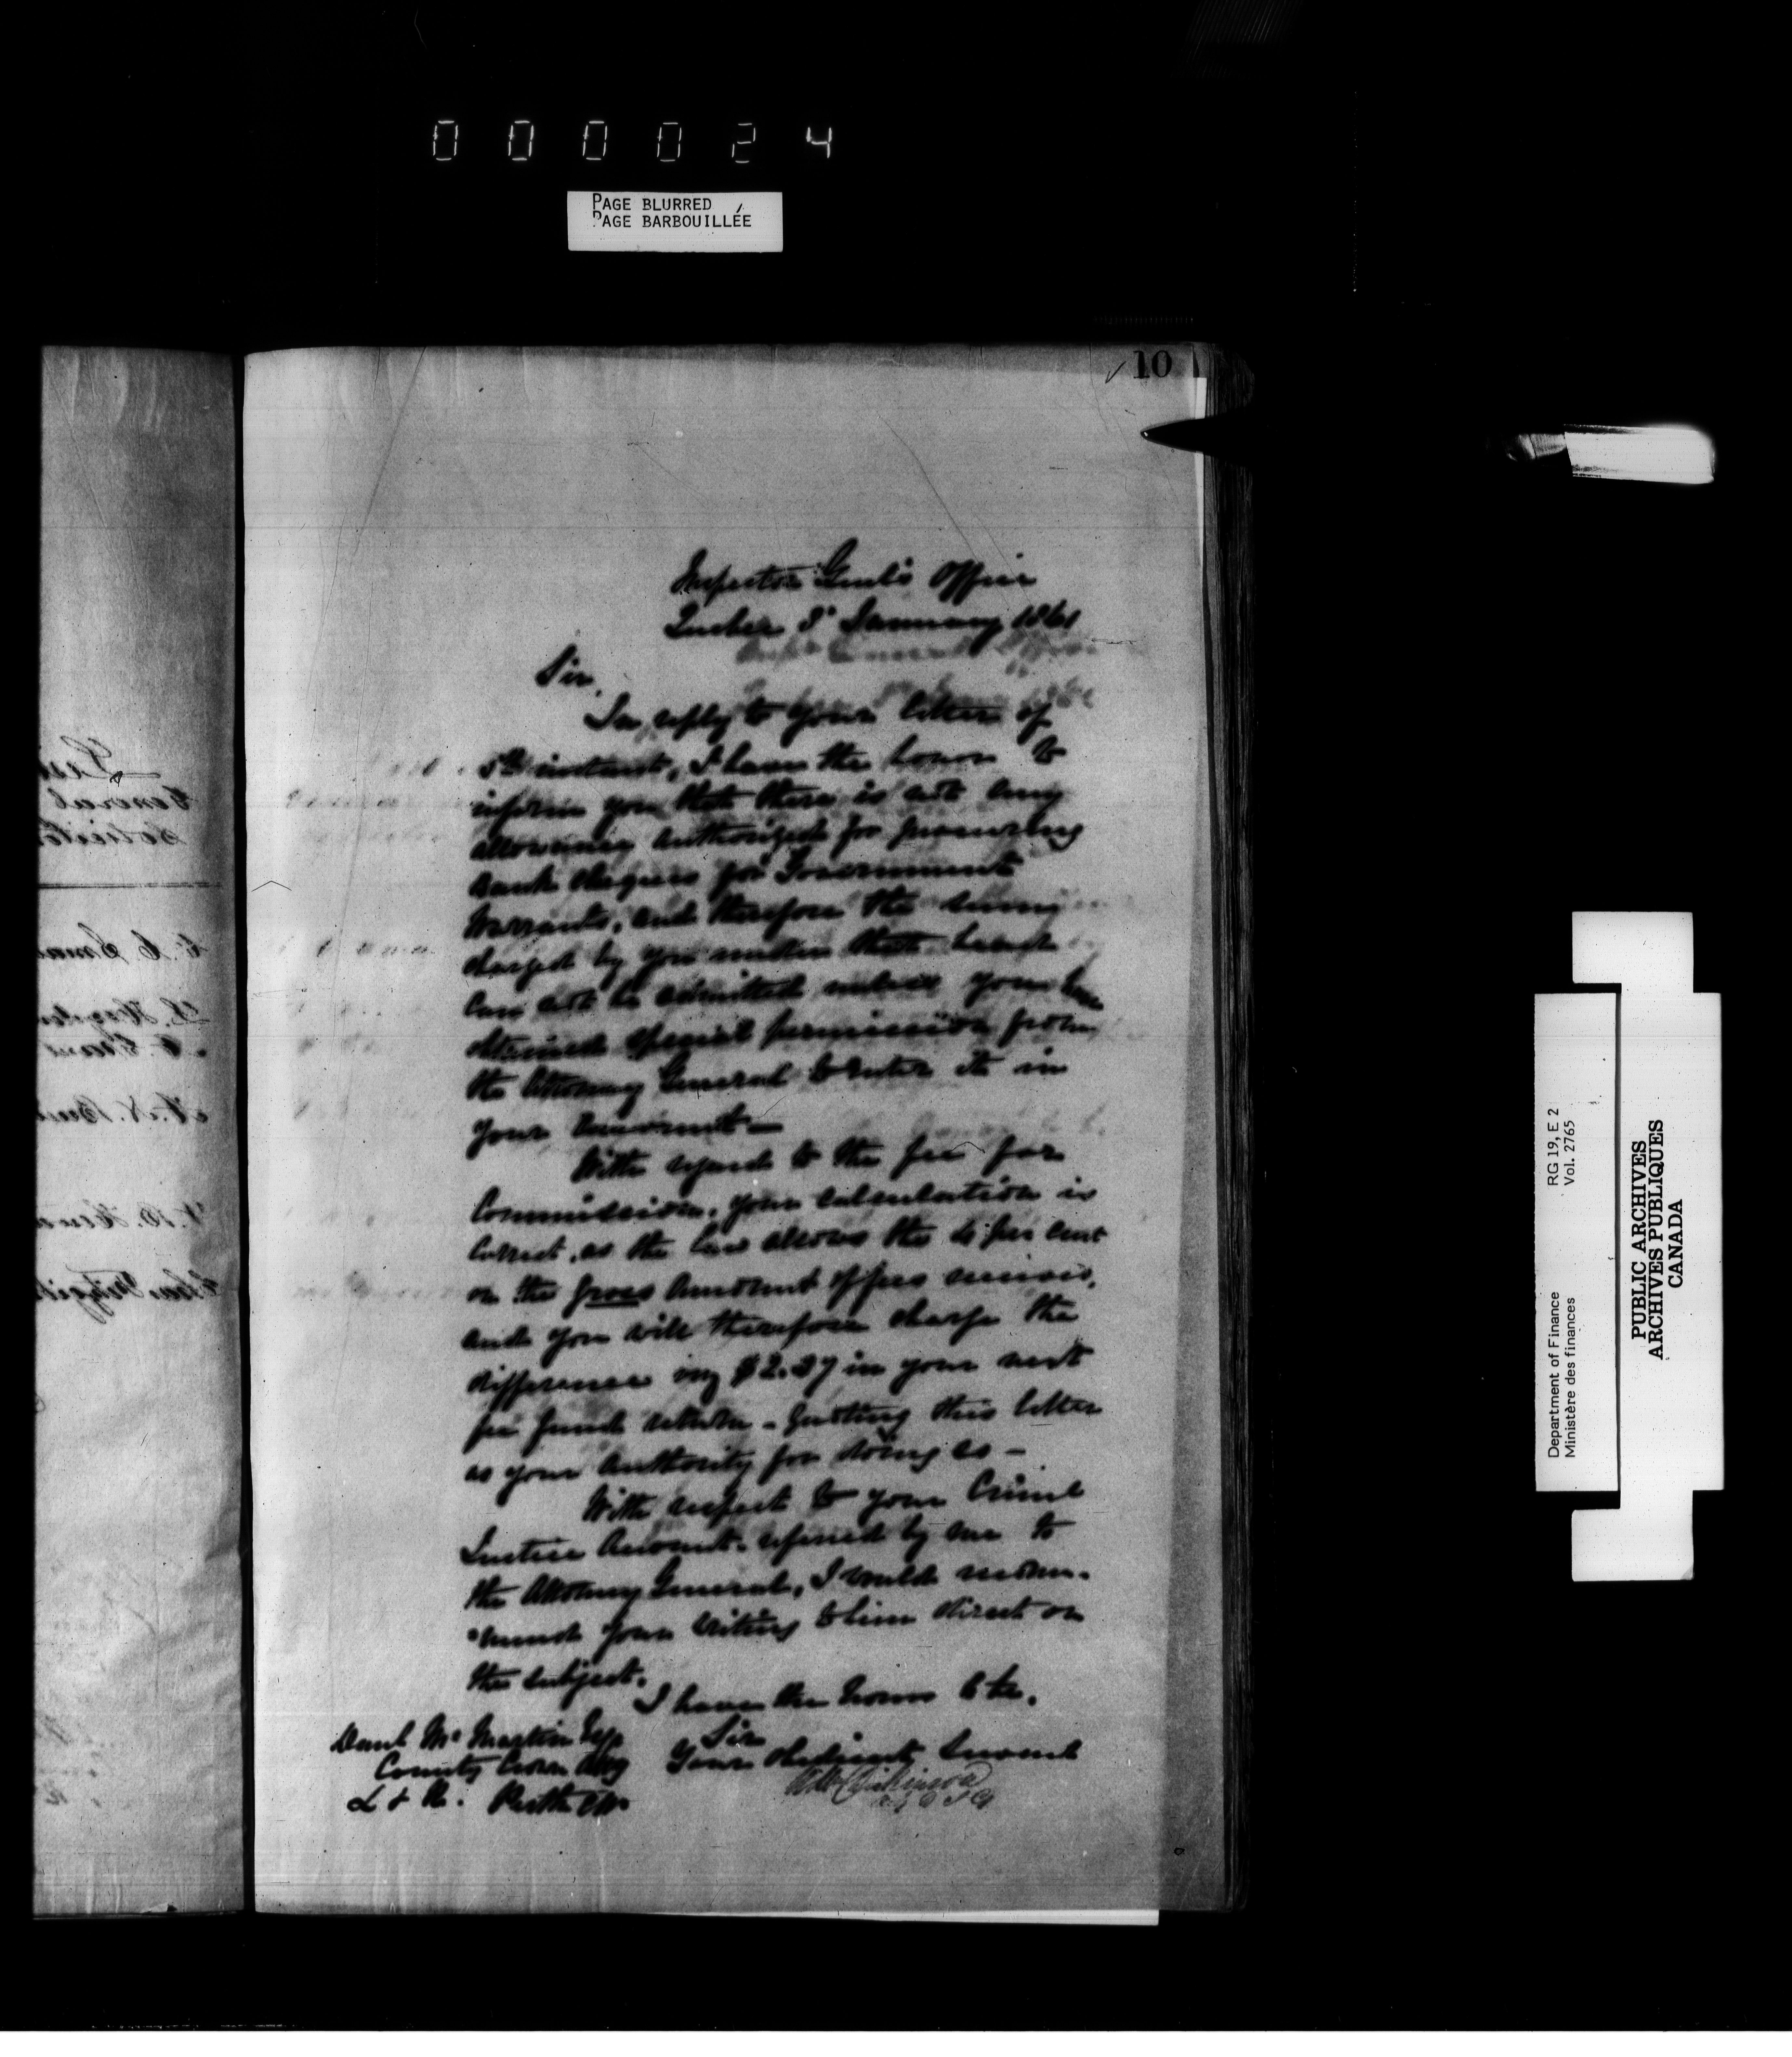 000024
PAGE BLURRED
PAGE BARBOUILLÉE
10
Inspector Genl's Office
Quebec 8 January 1861
Sir,
In reply to your letter of
5th instant, I have the honor to
inform you that there is not any
allowance authorized for procuring
Bank cheques for Government
Warrants, and therefore the sum
charged by you under that head
can not be admitted unless you have
obtained special permission from
the Attorney General to enter it in
your Account—
With regard to the fee for
Commission, your calculation is
correct, as the law allows the 4 per cent
on the gross amount of fees
and you will therefore charge the
difference viz $2.27 in your next
fee fund return - quoting this letter
as your authority for doing so -
With respect to your Criml
Justice Account referred by me to
the Attorney General, I would recom-
"mend your writing to him direct on
the subject.
I have the honor to be,
Sir
Your obedient Servant
Wm Dickinson
Danl McMartin Esq
County Crown Atty
L & R. Perth CW
Department of Finance
Ministère des finances
RG 19, E 2
Vol. 2765
PUBLIC ARCHIVES
ARCHIVES PUBLIQUES
CANADA